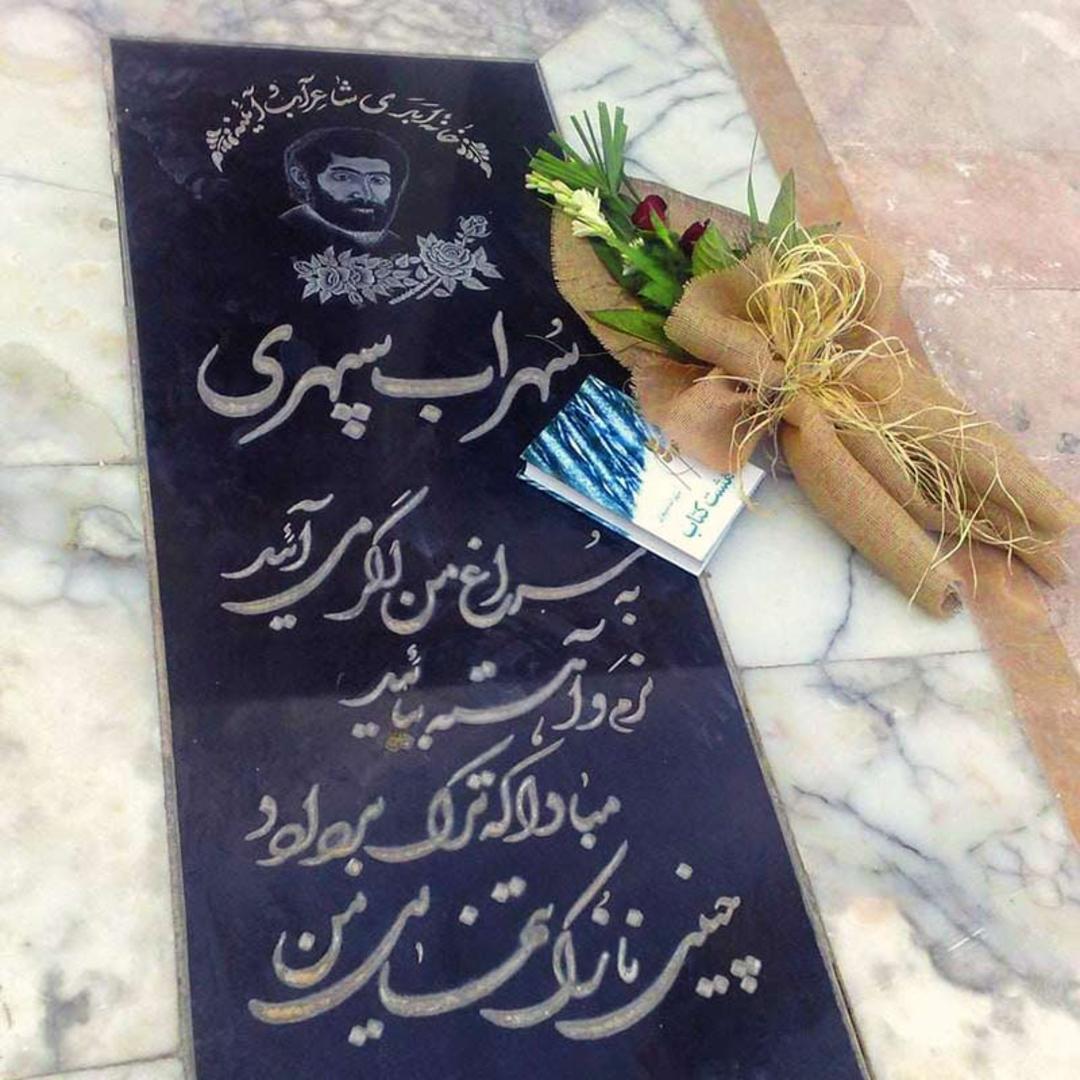 خانه ابدی شاعر آب و آیینه
سُهراب سپهری
به سُراغ من اگر می آئید
نرم و آهسته بیائید
مبادا که ترک بردارد
چینی نازک تنهایی من
هشت کتاب